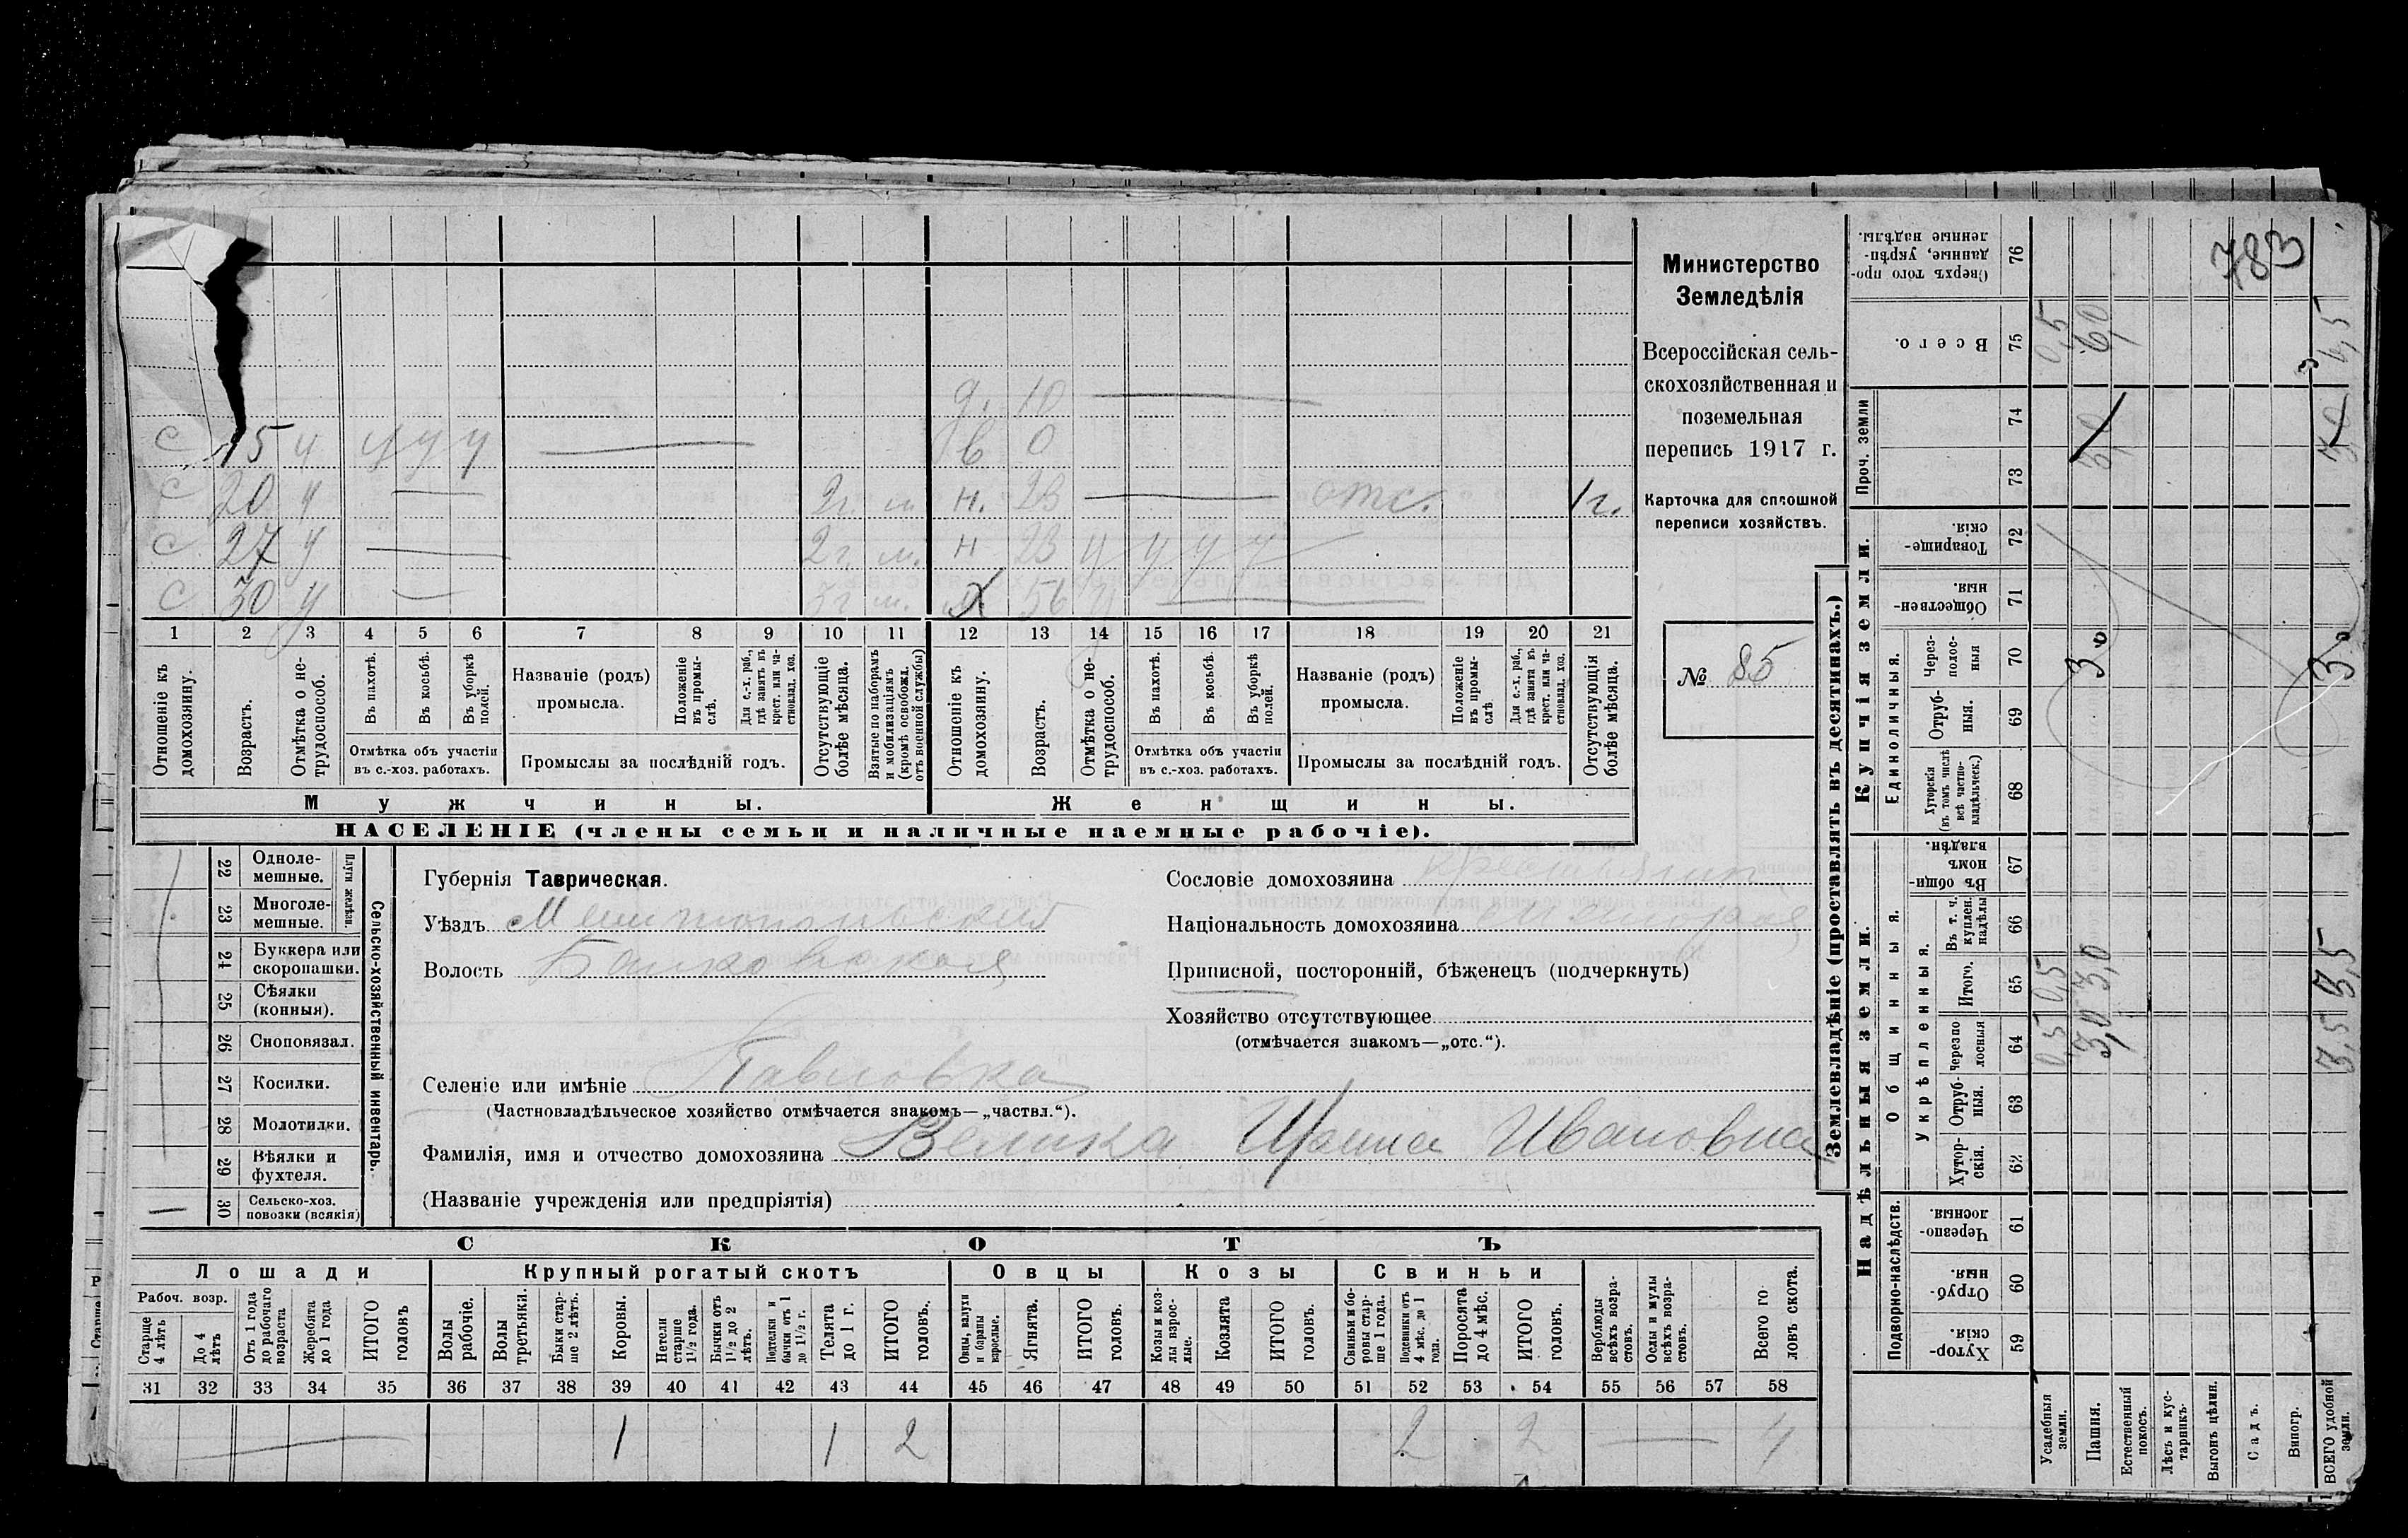 783
Министерство
Земледѣлія
Всероссійская сель-
скохозяйственная и
поземельная
перепись 1917 г.
Карточка для сплошной
переписи хозяйствъ.
№ 85
д. 10
с 15 ч ч ч ч в 0
с 20 ч 2г. м н. 23 отс. 1г.
с 27 ч 2г. м. н 23 ч ч ч ч
с 30 ч 3г м. х 56 ч
1 2 3 4 5 6 7 8 9 10 11 12 13 14 15 16 17 18 19 20 21
Отношеніе къ домохозяину.
Возрастъ.
Отмѣтка о не-трудоспособ.
Въ пахотѣ.
Въ косьбѣ.
Въ уборкѣ полей.
Отмѣтка объ участіи
въ с.-хоз. работахъ.
Названіе (родъ)
промысла.
Положеніе въ промы-слѣ.
Для с.-х. раб., гдѣ занятъ въ крест. или ча-стновлад. хоз.
Промыслы за послѣдній годъ.
Отсутствующіе болѣе мѣсяца.
Взятые по наборамъ и мобилизаціямъ (кромѣ освобожд. отъ военной службы)
Отношеніе къ домохозяину.
Возрастъ.
Отмѣтка о не-трудоспособ.
Въ пахотѣ.
Въ косьбѣ.
Въ уборкѣ полей.
Отмѣтка объ участіи
въ с.-хоз. работахъ.
Названіе (родъ)
промысла.
Положеніе въ промы-слѣ
Для с.-х. раб., гдѣ занята въ крест. или ча-стновлад. хоз.
Промыслы за послѣдній годъ.
Отсутствующія болѣе мѣсяца.
Мужчины. Женщины.
НАСЕЛЕНІЕ (члены семьи и наличные наемные рабочіе).
Сельско-хозяйственный инвентарь.
Плуги желѣзн.
22 Одноле-мешные.
23 Многоле-мешные.
24 Буккера или скоропашки.
25 Сѣялки (конныя).
26 Сноповязал.
27 Косилки.
28 Молотилки.
29 Вѣялки и фухтеля.
30 Сельско-хоз. повозки (всякія)
Губернія Таврическая.
Уѣздъ Мелитопольскій
Волость
Селеніе или имѣніе Павловка
(Частновладѣльческое хозяйство отмѣчается знакомъ—„частвл.“).
Фамилія, имя и отчество домохозяина Велика Ирина Ивановна
(Названіе учрежденія или предпріятія)
Сословіе домохозяина крестьянин
Національность домохозяина
Приписной, посторонній, бѣженец (подчеркнуть)
Хозяйство отсутствующее
(отмѣчается знакомъ—„отс.“).
СКОТЪ
Лошади Крупный рогатый скотъ Овцы Козы Свиньи
Рабоч. возр.
Старше 4 лѣтъ
До 4 лѣтъ
Отъ 1 года до рабочаго возраста
Жеребята до 1 года
ИТОГО головъ
Волы рабочіе.
Волы третьяки.
Быки стар-ше 2 лѣтъ.
Коровы.
Нетели старше 1½ года.
Бычки отъ 1½ до 2 лѣтъ.
Подтелки и бычки отъ 1 до 1½ г.
Телята до 1 г.
ИТОГО головъ.
Овцы, валухи и бараны взрослые.
Ягнята.
ИТОГО головъ.
Козы и коз-лы взрос-лые.
Козлята
ИТОГО головъ.
Свиньи и бо-ровы стар-ше 1 года.
Подсвинки отъ 4 мѣс. до 1 года.
Поросята до 4 мѣс.
ИТОГО головъ.
Верблюды всѣхъ возра-стовъ.
Ослы и мулы всѣхъ возра-стовъ.
Всего го-ловъ скота.
31 32 33 34 35 36 37 38 39 40 41 42 43 44 45 46 47 48 49 50 51 52 53 54 55 56 57 58
1 1 2 2 2 4
Землевладѣніе (проставлять въ десятинахъ.)
Купчія земли.
Надѣльныя земли.
Сверхъ того про-данные, укрѣп-ленные надѣлы. 76
Всего. 75 0,5 6,0 6,5
Проч. земли 74 73 3,0
Товарище-скія. 72
Обществен-ныя. 71
Единоличныя.
Через-полос-ныя 70 3,0 3,0
Отруб-ныя. 69
Хуторскія (въ томъ числѣ всѣ частно-владѣльческ.) 68
Общинныя.
Въ общи-номъ владѣн. 67
Укрѣпленныя.
Въ т. ч. куплен. надѣлы 66
Итого. 65 0,5 3,0 3,5
Черезпо-лосныя 64 0,5 3,0 3,5
Отруб-ныя. 63
Хутор-скія. 62
Подворно-наслѣдств.
Черезпо-лосныя. 61
Отруб-ныя. 60
Хутор-скія. 59
Усадебныя земли.
Пашня.
Естественный покосъ.
Лѣсъ и кус-тарникъ.
Выгонъ цѣлин.
Садъ.
Виногр.
ВСЕГО удобной земли.